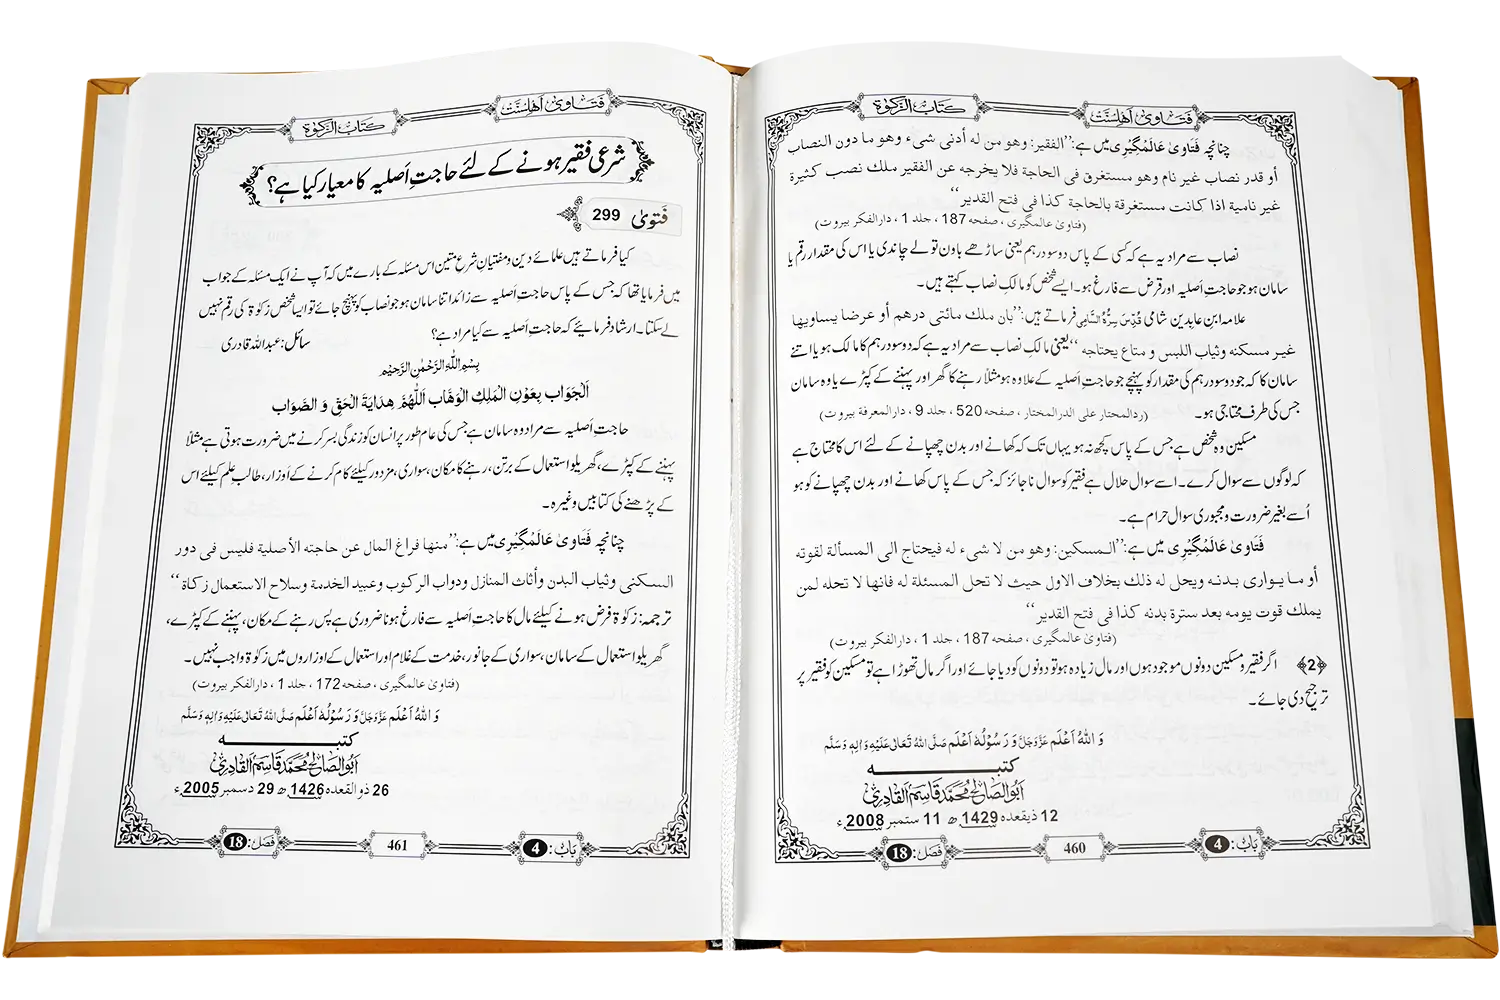 کتاب الزکوٰۃ
فتاویٰ اہلسنت
چنانچہ فتاویٰ عالمگیری میں ہے: ”الفقیر: وهو من له أدنى شىء وهو ما دون النصاب
أو قدر نصاب غير نام وهو مستغرق فى الحاجة فلا يخرجه عن الفقير ملك نصب كثيرة
غير نامية اذا كانت مستغرقة بالحاجة كذا فى فتح القدير“
(فتاویٰ عالمگیری ، صفحہ 187 ، جلد 1 ، دارالفکر بیروت)
نصاب سے مراد یہ ہے کہ کسی کے پاس دو سو درہم یعنی ساڑھے باون تولے چاندی یا اس کی مقدار رقم یا
سامان ہو جو حاجتِ اَصلیہ اور قرض سے فارغ ہو۔ ایسے شخص کو مالکِ نصاب کہتے ہیں۔
علامہ ابن عابدین شامی قُدِّسَ سِرُّہُ السَّامِی فرماتے ہیں: ”بان ملك مائتى درهم أو عرضا يساويها
غير مسكنه وثياب اللبس و متاع يحتاجه“ یعنی مالکِ نصاب سے مراد یہ ہے کہ دو سو درہم کا مالک ہو یا اتنے
سامان کا کہ جو دو سو درہم کی مقدار کو پہنچے جو حاجتِ اَصلیہ کے علاوہ ہو مثلاً رہنے کا گھر اور پہننے کے کپڑے یا وہ سامان
جس کی طرف محتاجی ہو۔ (ردالمحتار علی الدرالمختار ، صفحہ 520 ، جلد 9 ، دارالمعرفة بیروت)
مسکین وہ شخص ہے جس کے پاس کچھ نہ ہو یہاں تک کہ کھانے اور بدن چھپانے کے لئے اس کا محتاج ہے
کہ لوگوں سے سوال کرے۔ اسے سوال حلال ہے فقیر کو سوال ناجائز کہ جس کے پاس کھانے اور بدن چھپانے کو ہو
اُسے بغیر ضرورت و مجبوری سوال حرام ہے۔
فتاویٰ عالمگیری میں ہے: ”المسكين: وهو من لا شىء له فيحتاج الى المسألة لقوته
أو ما يوارى بدنه ويحل له ذلك بخلاف الاول حيث لا تحل المسئلة له فانها لا تحله لمن
يملك قوت يومه بعد سترة بدنه كذا فى فتح القدير“
(فتاویٰ عالمگیری ، صفحہ 187 ، جلد 1 ، دارالفکر بیروت)
﴿2﴾ اگر فقیر و مسکین دونوں موجود ہوں اور مال زیادہ ہو تو دونوں کو دیا جائے اور اگر مال تھوڑا ہے تو مسکین کو فقیر پر
ترجیح دی جائے۔
وَ اللّٰہُ اَعْلَم عَزَّوَجَلَّ وَ رَسُوْلُہٗ اَعْلَم صَلَّی اللّٰہُ تَعَالٰی عَلَیْہِ وَاٰلِہٖ وَسَلَّم
کتبــــــــــہ
اَبُوالصَّالِح مُحَمَّد قَاسِم اَلقَادِرِی
12 ذیقعدہ 1429 ھ 11 ستمبر 2008 ء
باب: 4
460
فصل: 18
کتاب الزکوٰۃ
فتاویٰ اہلسنت
شرعی فقیر ہونے کے لئے حاجتِ اَصلیہ کا معیار کیا ہے؟
فتویٰ 299
کیا فرماتے ہیں علمائے دین و مفتیانِ شرعِ متین اس مسئلہ کے بارے میں کہ آپ نے ایک مسئلہ کے جواب
میں فرمایا تھا کہ جس کے پاس حاجتِ اَصلیہ سے زائد اتنا سامان ہو جو نصاب کو پہنچ جائے تو ایسا شخص زکوٰۃ کی رقم نہیں
لے سکتا۔ ارشاد فرمایئے کہ حاجتِ اَصلیہ سے کیا مراد ہے؟ سائل: عبداللہ قادری
بِسْمِ اللّٰہِ الرَّحْمٰنِ الرَّحِیْمِ
اَلْجَوَاب بِعَوْنِ الْمَلِکِ الْوَهَّاب اَللّٰهُمَّ هِدَایَةَ الْحَقِّ وَ الصَّوَاب
حاجتِ اَصلیہ سے مراد وہ سامان ہے جس کی عام طور پر انسان کو زندگی بسر کرنے میں ضرورت ہوتی ہے مثلاً
پہننے کے کپڑے، گھریلو استعمال کے برتن، رہنے کا مکان، سواری، مزدور کیلئے کام کرنے کے اَوزار، طالبِ علم کیلئے اس
کے پڑھنے کی کتابیں وغیرہ۔
چنانچہ فتاویٰ عالمگیری میں ہے: ”منها فراغ المال عن حاجته الأصلية فليس فى دور
السكنى وثياب البدن وأثاث المنازل ودواب الركوب وعبيد الخدمة وسلاح الاستعمال زكاة“
ترجمہ: زکوٰۃ فرض ہونے کیلئے مال کا حاجتِ اَصلیہ سے فارغ ہونا ضروری ہے پس رہنے کے مکان، پہننے کے کپڑے،
گھریلو استعمال کے سامان، سواری کے جانور، خدمت کے غلام اور استعمال کے اوزاروں میں زکوٰۃ واجب نہیں۔
(فتاویٰ عالمگیری ، صفحہ 172 ، جلد 1 ، دارالفکر بیروت)
وَ اللّٰہُ اَعْلَم عَزَّوَجَلَّ وَ رَسُوْلُہٗ اَعْلَم صَلَّی اللّٰہُ تَعَالٰی عَلَیْہِ وَاٰلِہٖ وَسَلَّم
کتبــــــــــہ
اَبُوالصَّالِح مُحَمَّد قَاسِم اَلقَادِرِی
26 ذوالقعدہ 1426 ھ 29 دسمبر 2005 ء
باب: 4
461
فصل: 18